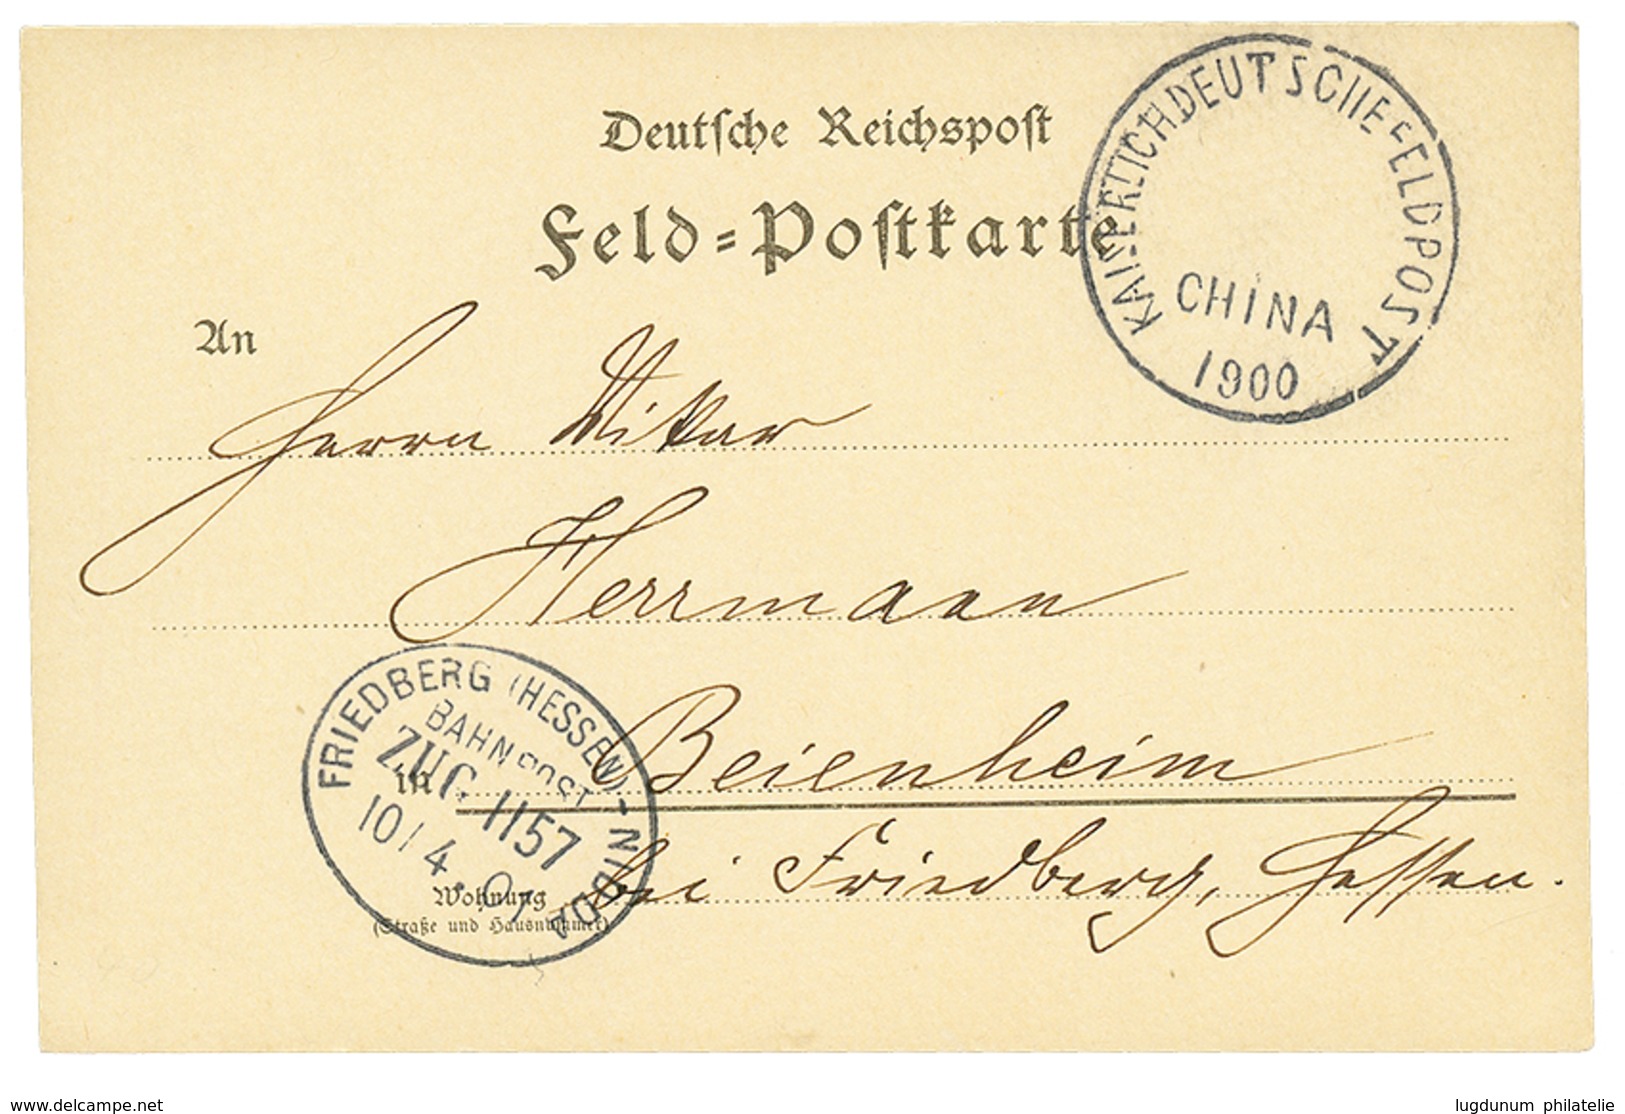 Deutsche Reichspost
Feld=Postkarte
KAISERLICH DEUTSCHE FELDPOST
CHINA
1900
An
Herrn Vikar
Herrmann
in Beienheim
bei Friedberg, Hessen.
FRIEDBERG (HESSEN)-NIDDA
BAHNPOST
ZUG 1157
10/4
Wohnung
(Straße und Hausnummer)
www.delcampe.net
lugdunum philatelie